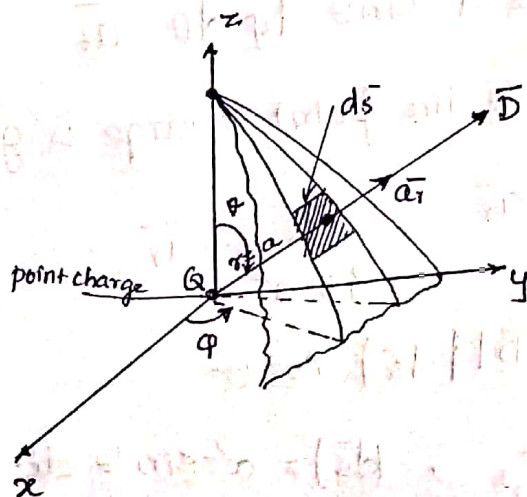 z
ds̄
D̄
ār
θ
r=a
point charge Q
y
φ
x